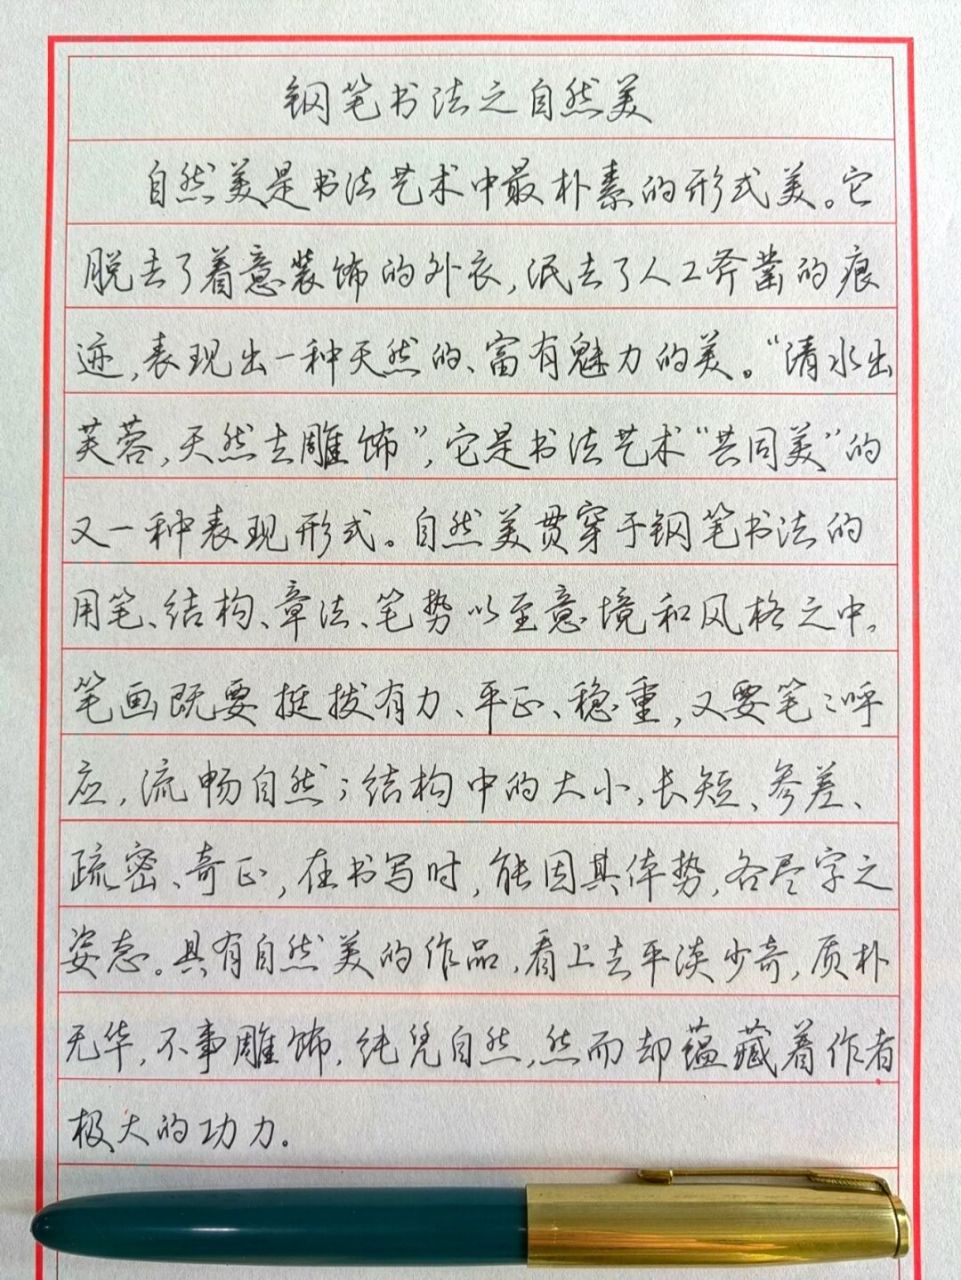 钢笔书法之自然美
自然美是书法艺术中最朴素的形式美。它
脱去了着意装饰的外衣,泯去了人工斧凿的痕
迹,表现出一种天然的、富有魅力的美。“清水出
芙蓉,天然去雕饰”,它是书法艺术“共同美”的
又一种表现形式。自然美贯穿于钢笔书法的
用笔、结构、章法、笔势以至意境和风格之中。
笔画既要挺拔有力、平正、稳重,又要笔〻呼
应,流畅自然;结构中的大小、长短、参差、
疏密、奇正,在书写时,能因其体势,各尽字之
姿态。具有自然美的作品,看上去平淡少奇,质朴
无华,不事雕饰,纯凭自然,然而却蕴藏着作者
极大的功力。